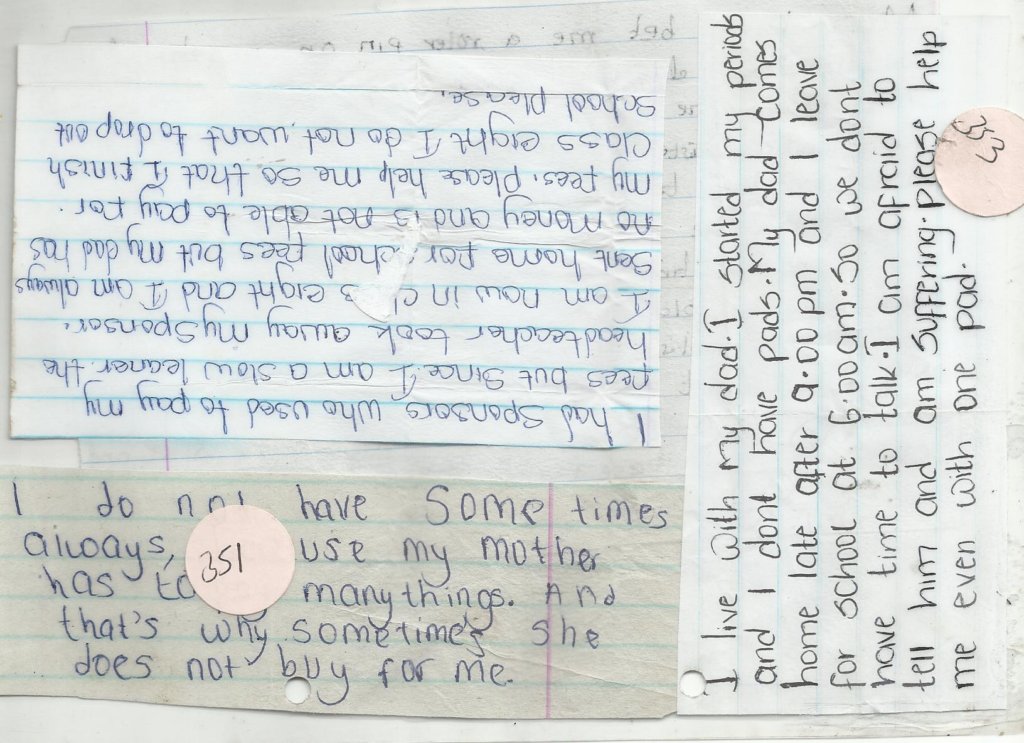 I had Sponsors who used to pay my
fees but since I am a slow leaner the
headteacher took away my Sponsor.
I am now in eight and I am always
Sent home for school fees but my dad has
no money and is not able to pay for
my fees. please help me so that I finish
Class eight I do not want to drop out
School please.
I do not have Some times
always, use my mother
has many things. And
that's why sometimes she
does not buy for me.
351
I live with my dad. I started my periods
and I dont have pads. My dad comes
home late after 9.00pm and I leave
for school at 6.00am. So we dont
have time to talk. I am afraid to
tell him and am suffering. please help
me even with one pad.
353
bet me a